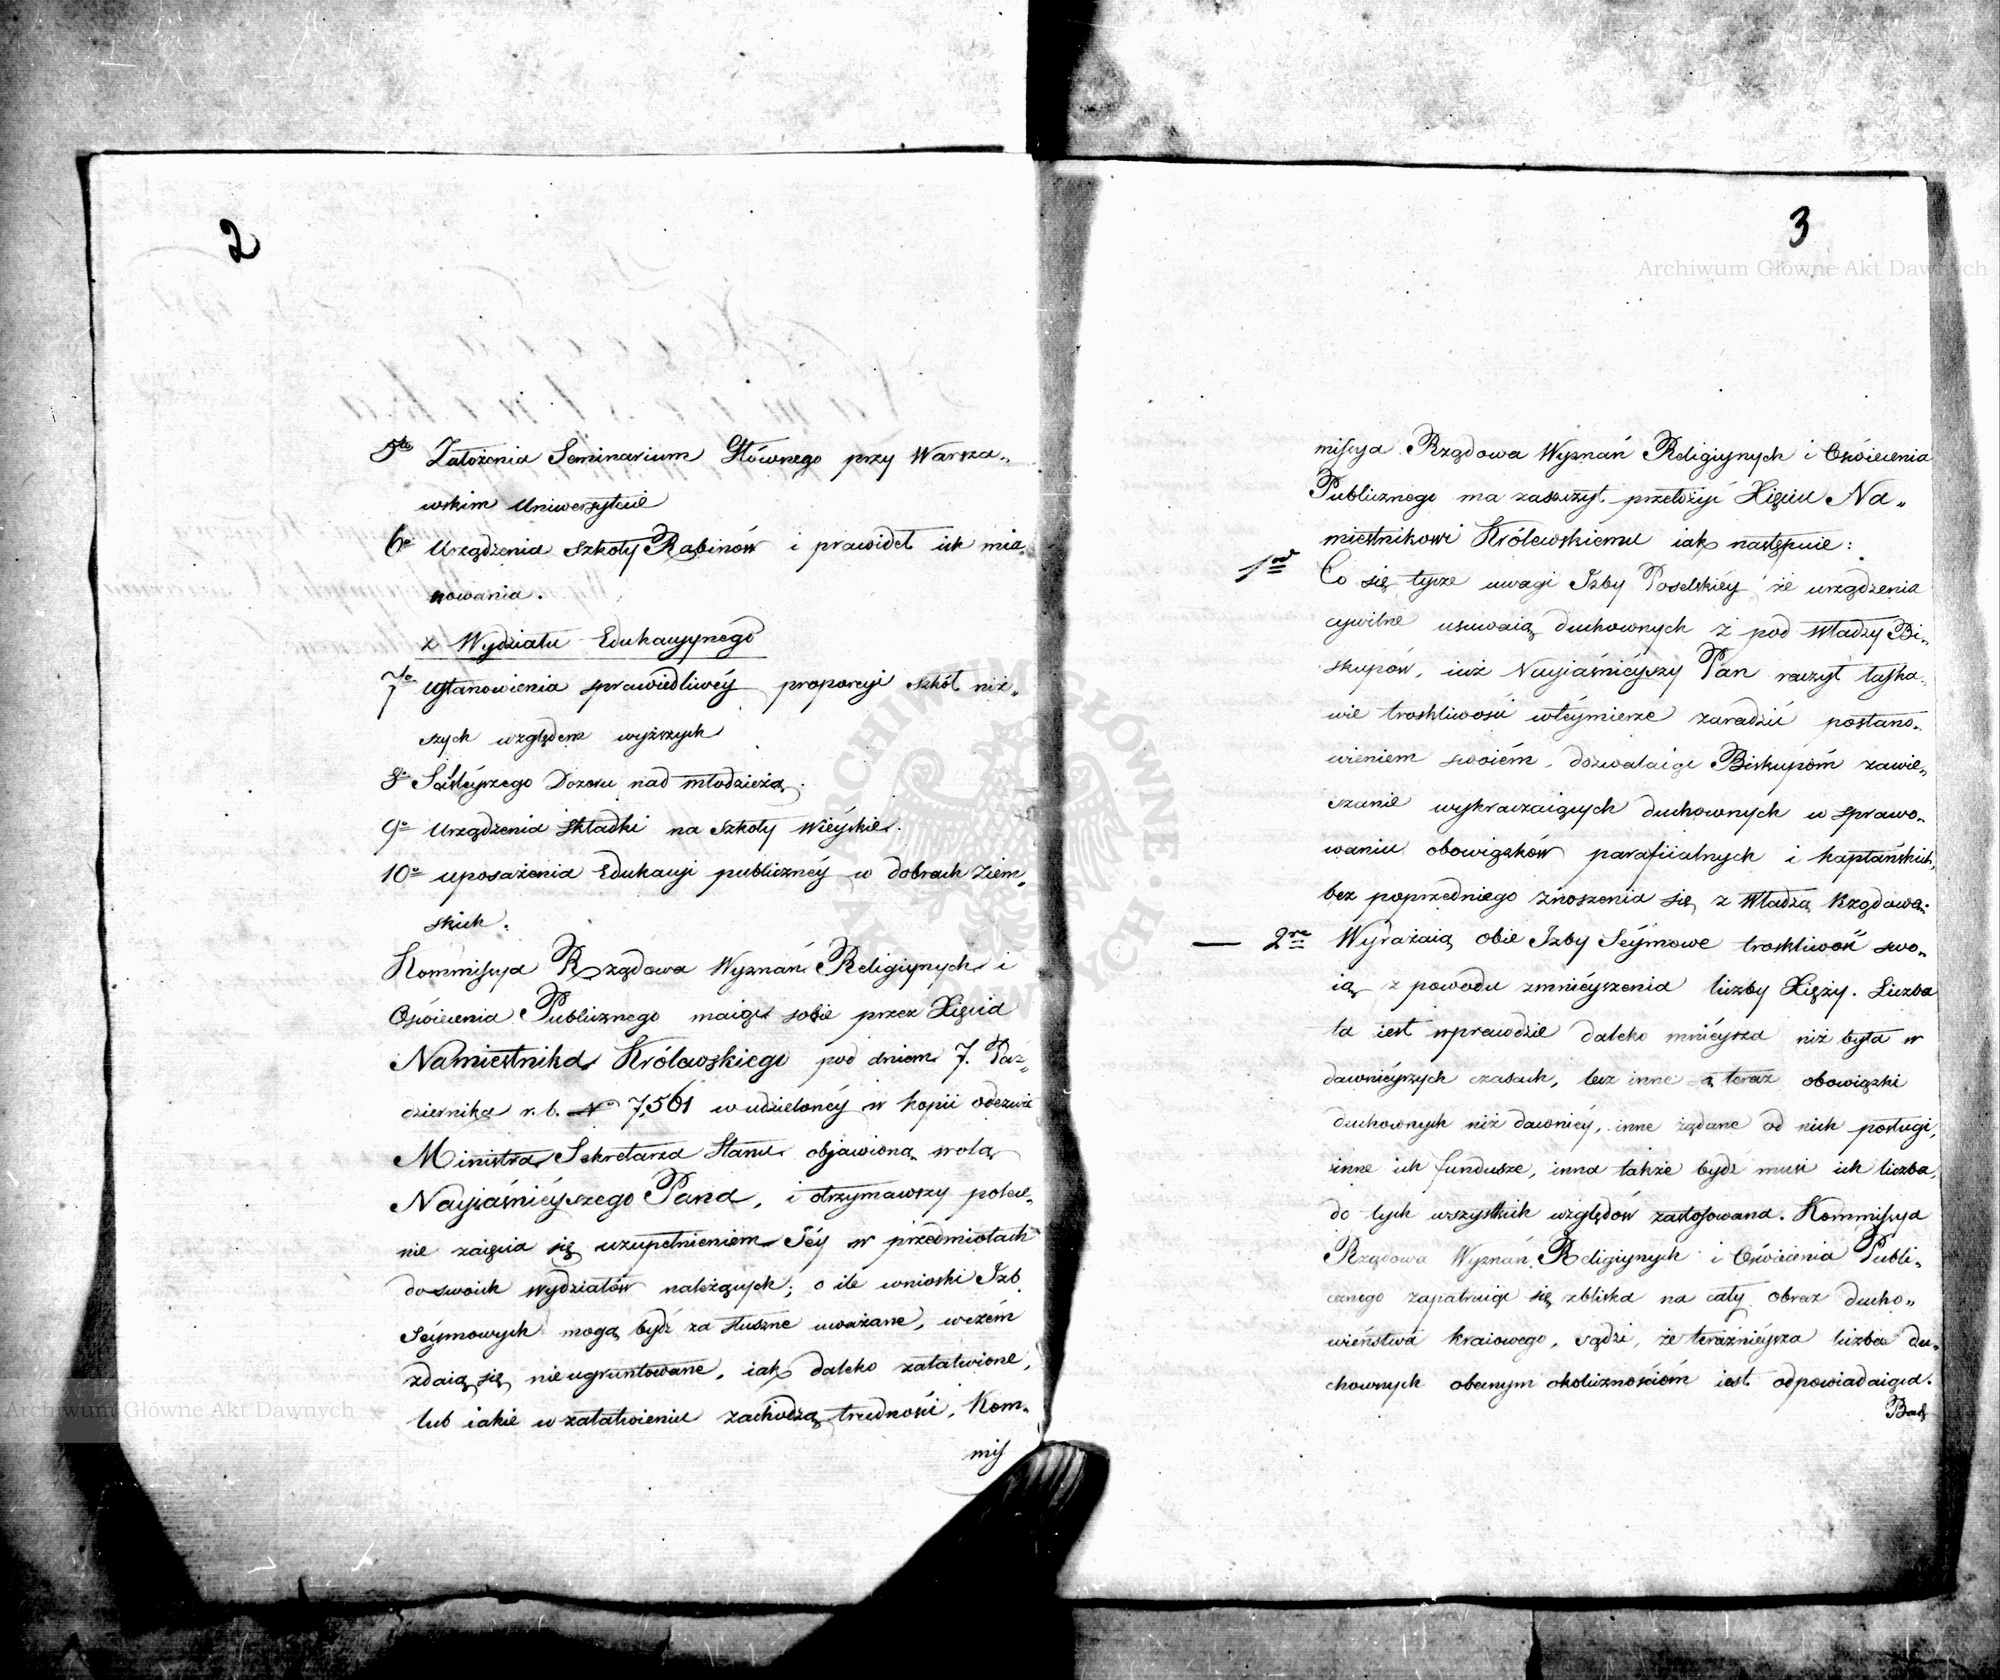 2
5to Założenia Seminarium Głównego przy Warsza„
wskim Uniwersytecie
6o Urządzenia Szkoły Rabinów i prawideł ich mia„
nowania.
z Wydziału Edukacyynego
7o Ustanowienia sprawiedliwéy proporcyi szkół niż„
szych względem wyższych
8o Ściśleyszego Dozoru nad młodzieżą.
9o Urządzenia składki na szkoły Wieyskie.
10o uposażenia Edukacyi publicznéy w dobrach Ziem„
skich.
Kommissya Rządowa Wyznań Religiynych i
Oświecenia Publicznego maiąc sobie przez Xięcia
Namiestnika Królewskiego pod dniem 7. Paź„
dziernika r. b. No 7,561 w udzielonéy w kopii odezwie
Ministra Sekretarza Stanu objawioną wolą
Nayiaśnieyszego Pana, i otrzymawszy polece„
nie zaięcia się uzupełnieniem Jéy w przedmiotach
do swoich wydziałów należących; o ile wnioski Izb
Séymowych mogą bydź za słuszne uważane, w czém
zdaią się nieugruntowane, iak daleko załatwione,
lub iakie w załatwieniu zachodzą trudności, Kom„
mis
3
missya Rządowa Wyznań Religiynych i Oświecenia
Publicznego ma zaszczyt przełożyć Xięciu Na„
miestnikowi Królewskiemu iak następuie:
1od Co się tycze uwagi Izby Poselskiéy że urządzenia
cywilne usuwaią duchownych z pod Władzy Bi„
skupów, iuż Nayiaśniéyszy Pan raczył łaska„
wie troskliwości w téymierze zaradzić postano„
wieniem swoiém, dozwalaiąc Biskupóm zawie„
szanie wykraczaiących duchownych w sprawo„
waniu obowiązków parafiialnych i kapłańskich,
bez poprzedniego znoszenia się z Władzą Rządową.
— 2re Wyrażaią obie Izby Séymowe troskliwość swo„
ią z powodu zmnieyszenia liczby Xięży. Liczba
ta iest wprawdzie daleko mnieysza niż była w
dawniéyszych czasach, lecz inne są teraz obowiązki
duchownych niż dawniéy, inne żądane od nich posługi,
inne ich fundusze, inna także bydź musi ich liczba,
do tych wszystkich względów zastosowana. Kommissya
Rządowa Wyznań Religiynych i Oświecenia Publi„
cznego zapatruiąc się zbliska na cały obraz ducho„
wieństwa kraiowego, sądzi, że teraźnieysza liczba du„
chownych obecnym okolicznościóm iest odpowiadaiąca.
Archiwum Główne Akt Dawnych
Archiwum Główne Akt Dawnych
ARCHIWUM GŁÓWNE AKT DAWNYCH